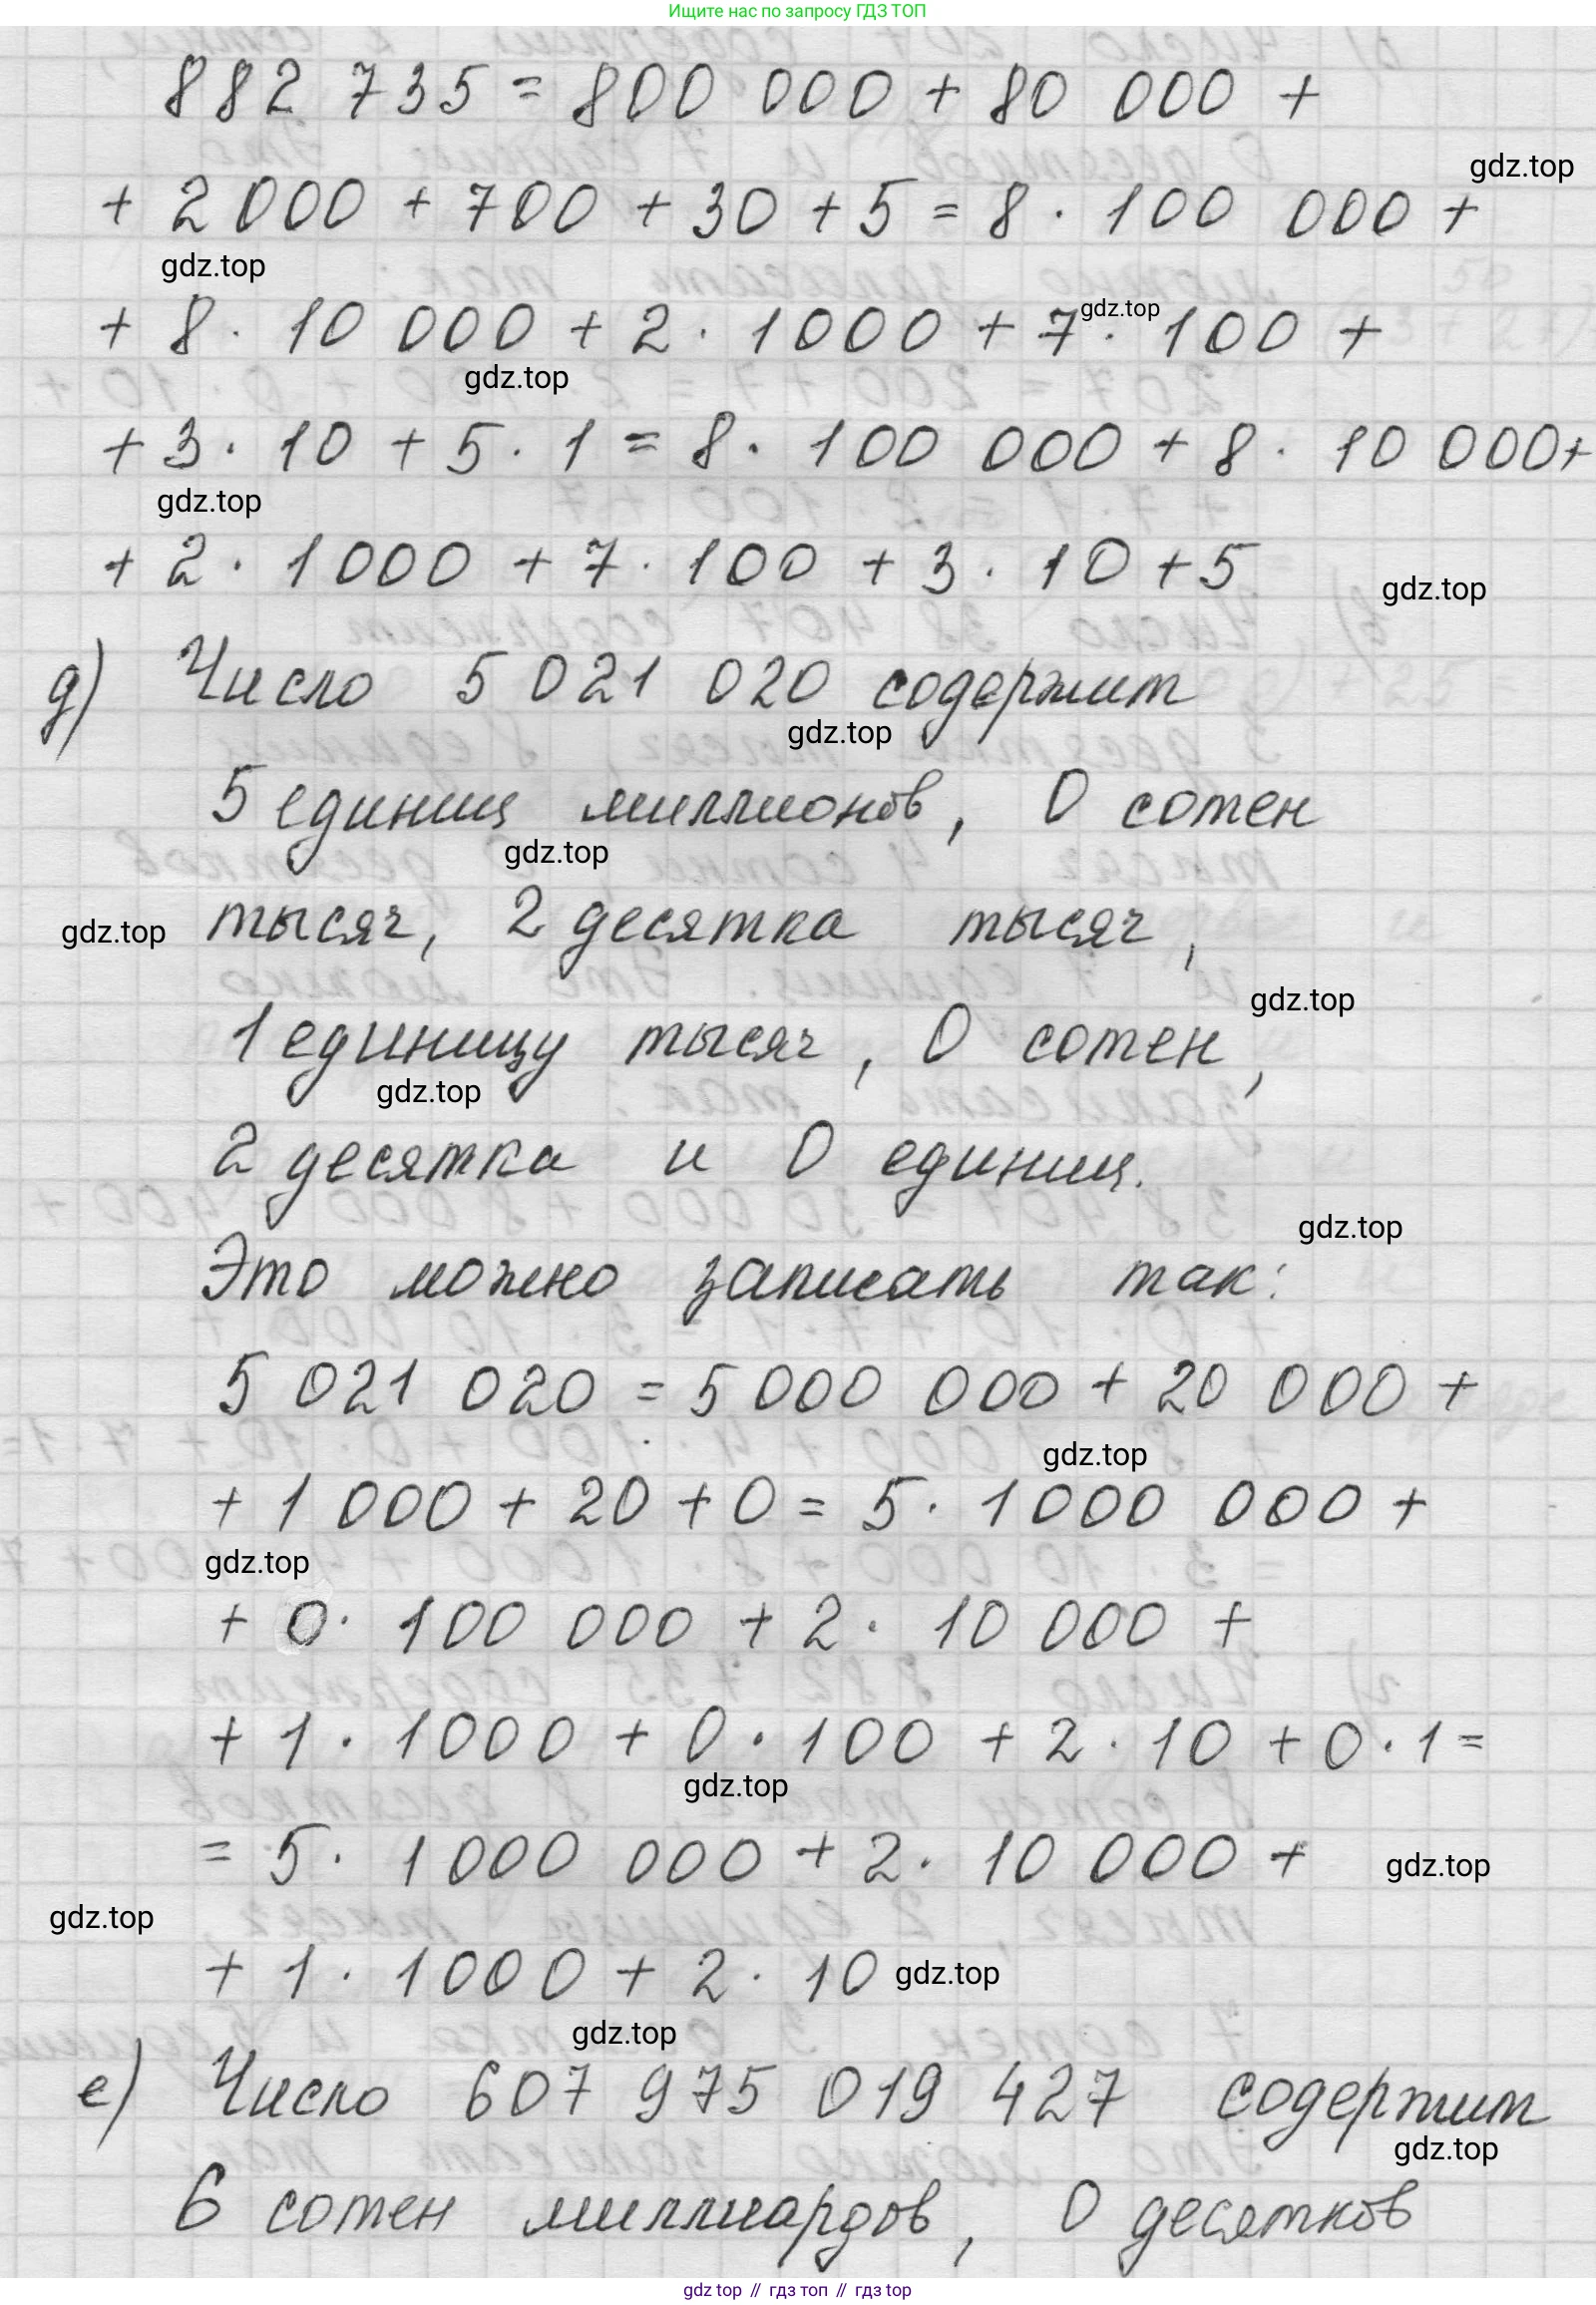 Ищите нас по запросу ГДЗ ТОП
882 735 = 800 000 + 80 000 +
gdz.top
+ 2 000 + 700 + 30 + 5 = 8 · 100 000 +
gdz.top
+ 8 · 10 000 + 2 · 1000 + 7 · 100 +
gdz.top
gdz.top
+ 3 · 10 + 5 · 1 = 8 · 100 000 + 8 · 10 000 +
gdz.top
+ 2 · 1000 + 7 · 100 + 3 · 10 + 5
gdz.top
д) Число 5 021 020 содержит
gdz.top
5 единиц миллионов, 0 сотен
gdz.top
gdz.top тысяч, 2 десятка тысяч,
gdz.top
1 единицу тысяч, 0 сотен,
gdz.top
2 десятка и 0 единиц.
gdz.top
Это можно записать так:
5 021 020 = 5 000 000 + 20 000 +
gdz.top
+ 1 000 + 20 + 0 = 5 · 1000 000 +
gdz.top
+ 0 · 100 000 + 2 · 10 000 +
+ 1 · 1000 + 0 · 100 + 2 · 10 + 0 · 1 =
gdz.top
= 5 · 1000 000 + 2 · 10 000 + gdz.top
gdz.top
+ 1 · 1000 + 2 · 10 gdz.top
gdz.top
е) Число 607 975 019 427 содержит
gdz.top
6 сотен миллиардов, 0 десятков
gdz top // гдз топ // gdz top